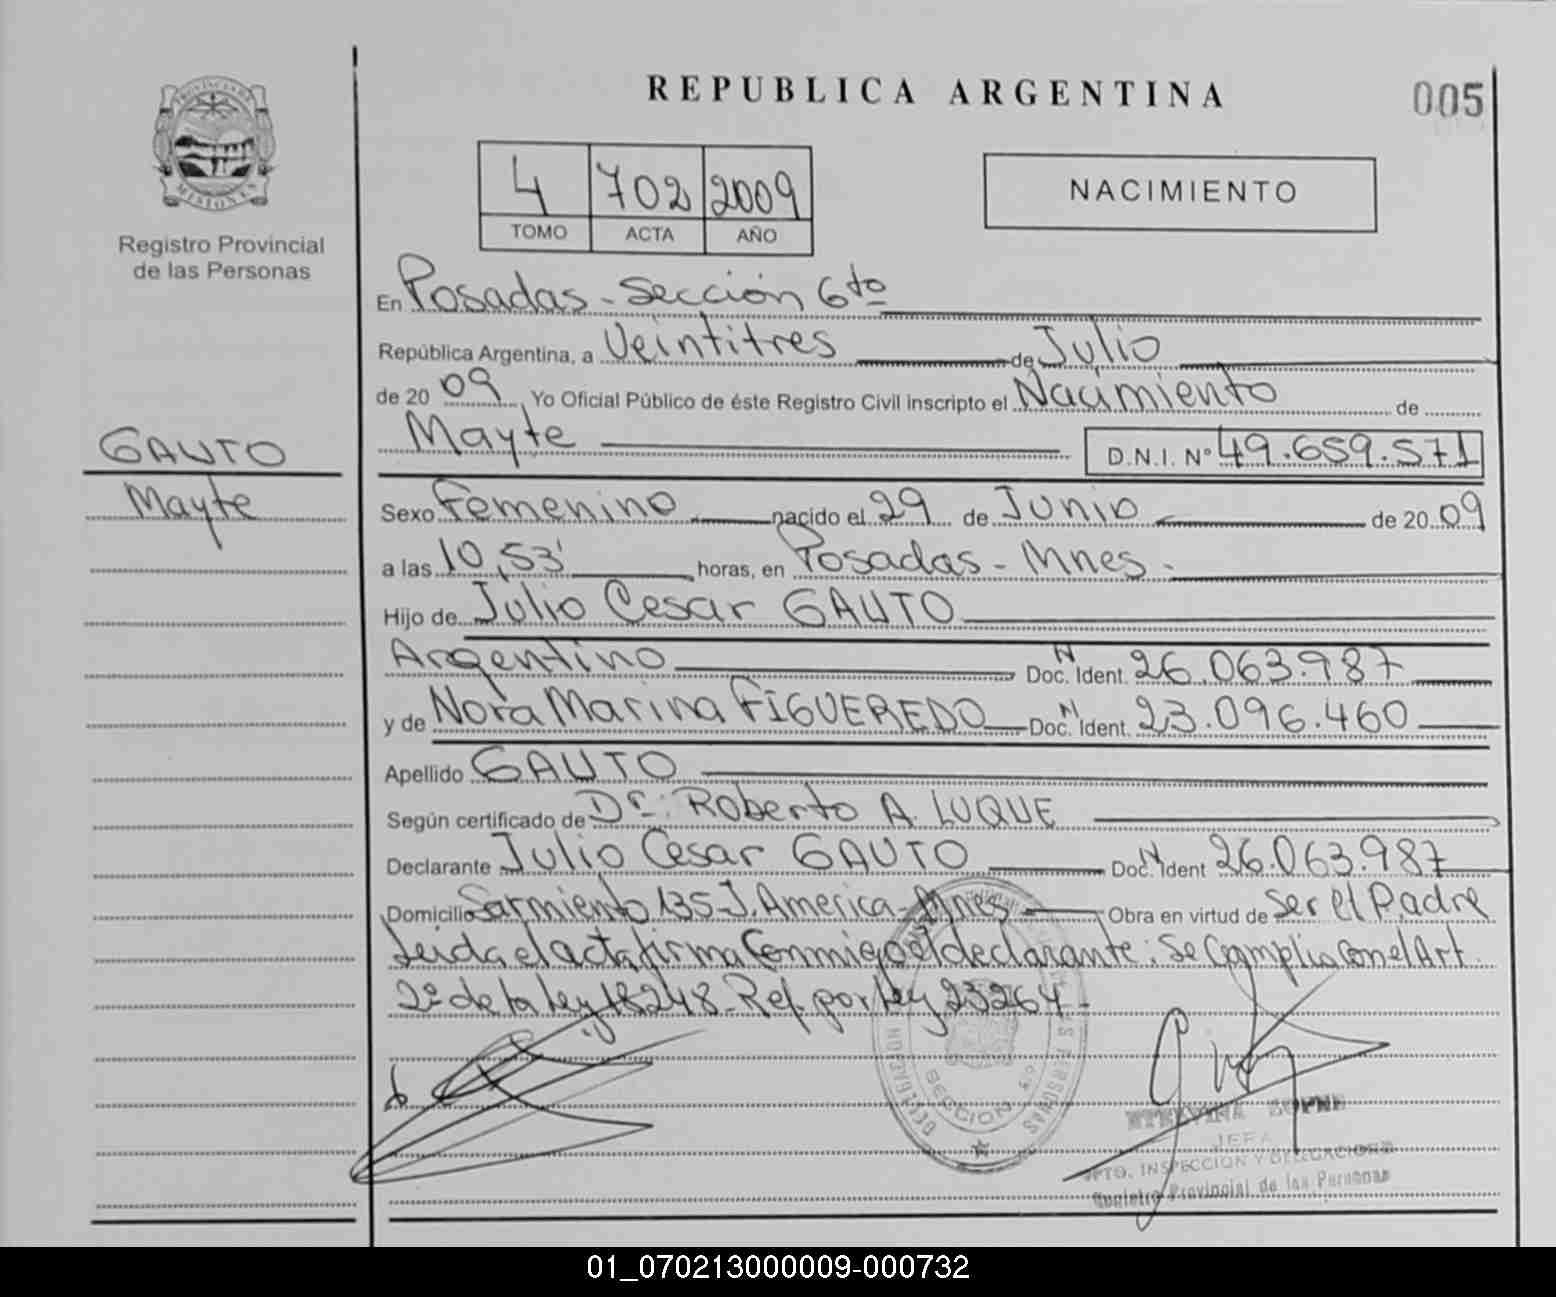 REPUBLICA ARGENTINA
005
PROVINCIA DE
MISIONES
Registro Provincial
de las Personas
4 702 2009
TOMO ACTA AÑO
NACIMIENTO
En Posadas - Sección 6to
República Argentina, a Veintitres de Julio
de 20 09 Yo Oficial Público de éste Registro Civil inscripto el Nacimiento de
Mayte D.N.I. N° 49.659.571
GAUTO
Mayte
Sexo Femenino nacido el 29 de Junio de 20 09
a las 10,53' horas, en Posadas - Mnes.
Hijo de Julio Cesar GAUTO
Argentino Doc. N Ident. 26.063.987
y de Nora Marina FIGUEREDO Doc. N Ident. 23.096.460
Apellido GAUTO
Según certificado de Dr. Roberto A. LUQUE
Declarante Julio Cesar GAUTO Doc. N Ident 26.063.987
Domicilio Sarmiento 135 - J. America - Mnes Obra en virtud de Ser el Padre
Leida el acta firma Conmigo el declarante: Se Cumplio con el Art.
2° de la ley 18248 - Ref. por ley 23264 -
SECCION 6°
PERSONAS
JEFA
DPTO. INSPECCION Y DELEGACIONES
Registro Provincial de las Personas
01_070213000009-000732